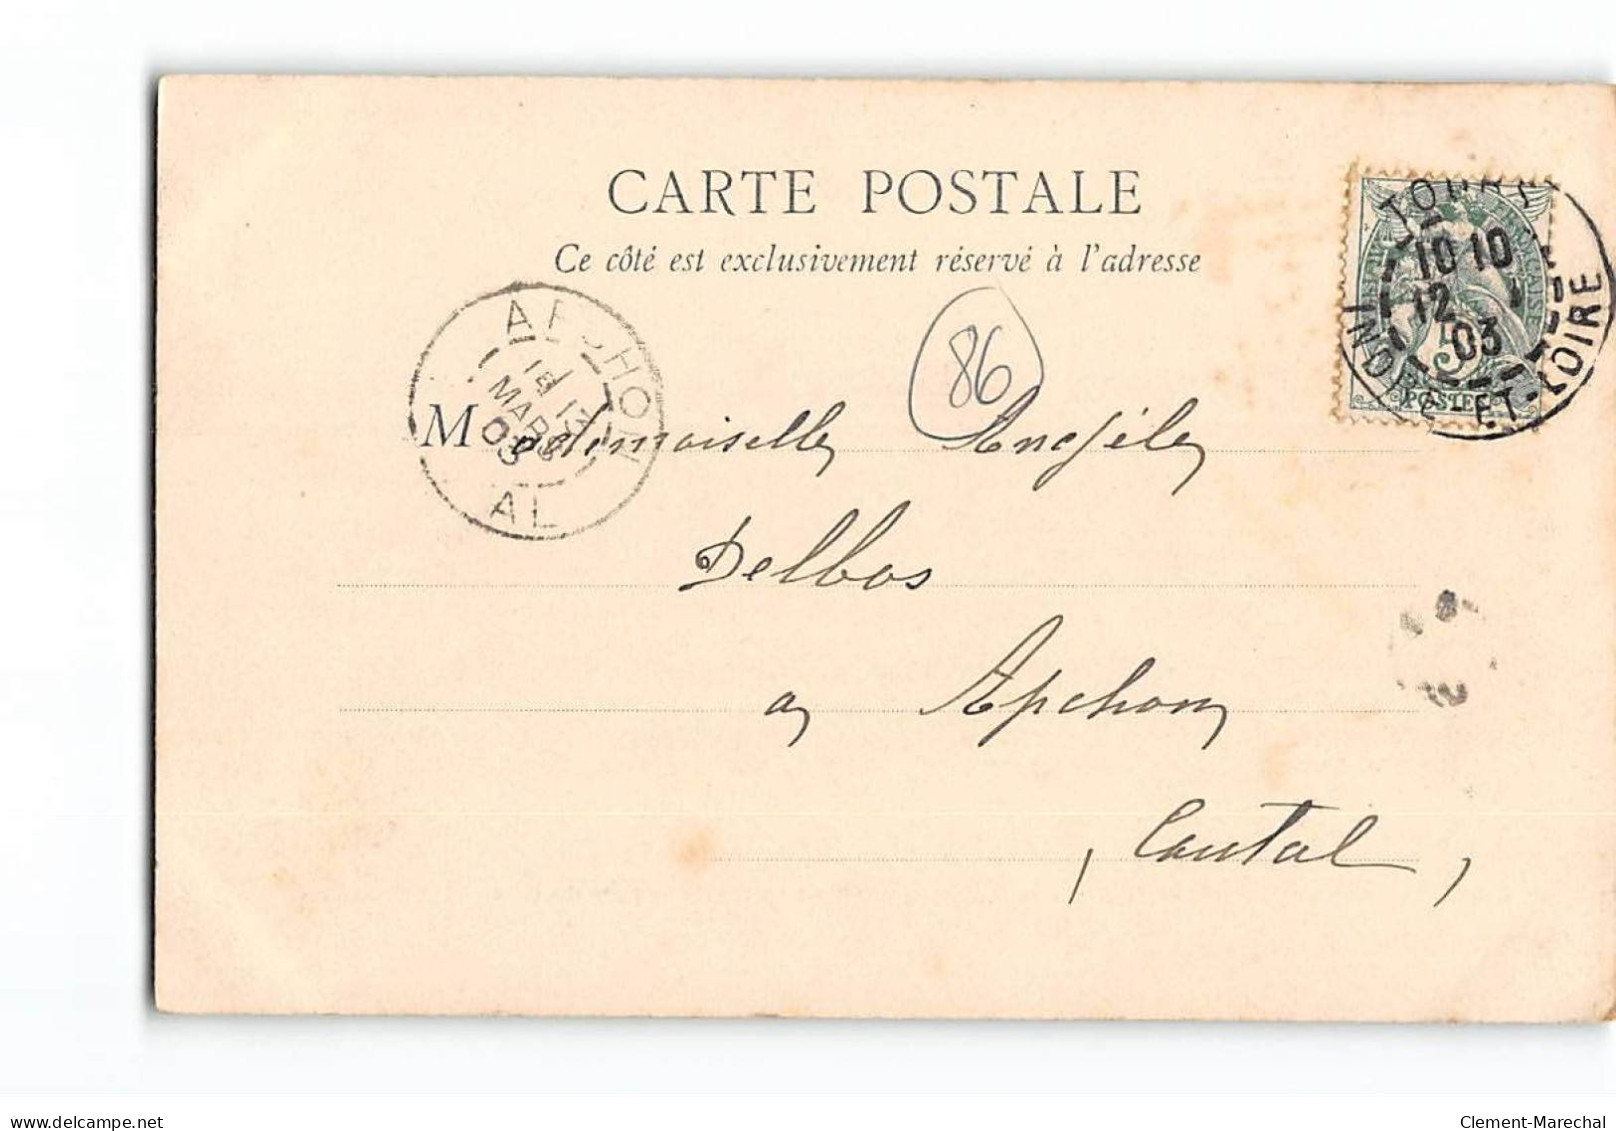 CARTE POSTALE
Ce côté est exclusivement réservé à l'adresse
TOURS
10 10
12
03
INDRE-ET-LOIRE
POSTES
APCHON
MARS
03
AL
86
Mademoiselle Angèle
Delbos
a Apchon
(Cantal)
delcampe.net
Clement-Marechal